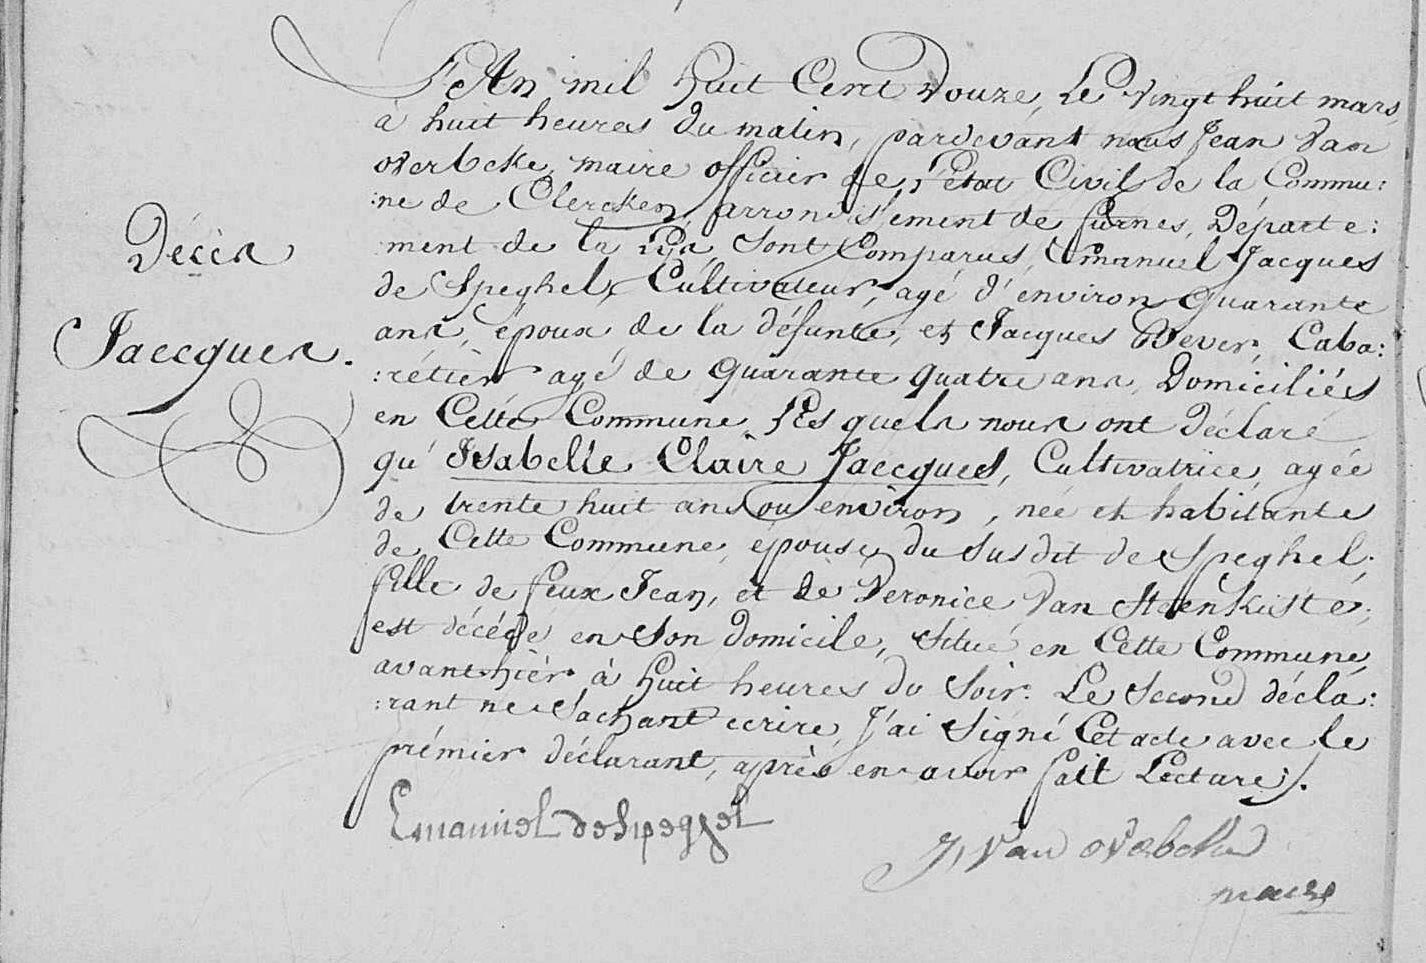 Décès
Jaecques.
L'An mil huit Cent Douze, Le vingt huit mars,
à huit heures du matin, pardevant nous Jean Van
overbeke, maire officier de l'état Civil de la Commu:
:ne de Clercken, arrondissement de furnes, Départe:
ment de la Lys, Sont Comparus, Emanuel Jacques
de Speghel, Cultivateur, agé d'environ quarante
ans, époux de la défunte, et Jacques Dever, Caba:
:rétièr agé de quarante quatre ans, Domiciliés
en Cette Commune, Lesquels nous ont déclaré
qu' Isabelle Claire Jaecques, Cultivatrice, agée
de trente huit ans ou environ, née et habitante
de Cette Commune, épouse du Susdit de Speghel;
fille de feux Jean, et de Veronice Van Steenkiste;
est décédé en Son domicile, Situé en Cette Commune,
avant-hièr à huit heures du Soir. Le Second décla:
:rant ne Sachant ecrire, J'ai Signé Cet acte avec le
prémier déclarant, après en avoir fait Lecture./.
Emanuel de Spegel
J, Van Overbeke
maire